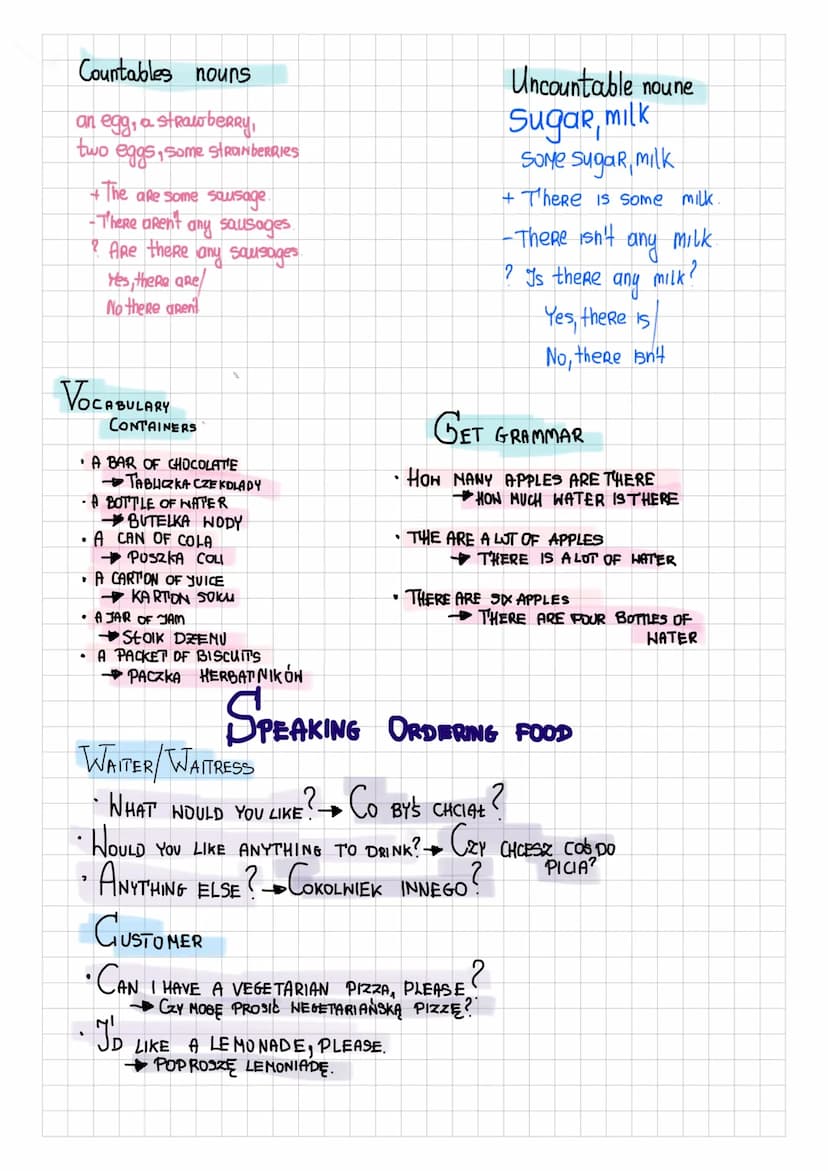 Countables nouns
an egg, a strawberry,
two eggs, some stranberries
+ The are some sausage
- There aren't any sausages
? Are there any sausages
Yes, there are/
No there aren't
Uncountable noune
Sugar, milk
some sugar, milk
+ There is some milk.
- There isn't any milk
? Is there any milk?
Yes, there is/
No, there isn't
Vocabulary
Containers
• A bar of chocolate
→ Tabliczka czekolady
• A bottle of water
→ Butelka wody
• A can of cola
→ Puszka coli
• A carton of juice
→ Karton soku
• A jar of jam
→ Słoik dżemu
• A packet of biscuits
→ Paczka herbatników
Get grammar
• How many apples are there
→ How much water is there
• The are a lot of apples
→ There is a lot of water
• There are six apples
→ There are four bottles of
water
Speaking Ordering food
Waiter/Waitress
• What would you like? → Co byś chciał?
• Would you like anything to drink? → Czy chcesz coś do
picia?
• Anything else? → Cokolwiek innego?
Customer
• Can I have a vegetarian pizza, please?
→ Czy mogę prosić wegetariańską pizzę?
• I'd like a lemonade, please.
→ Poproszę lemoniadę.